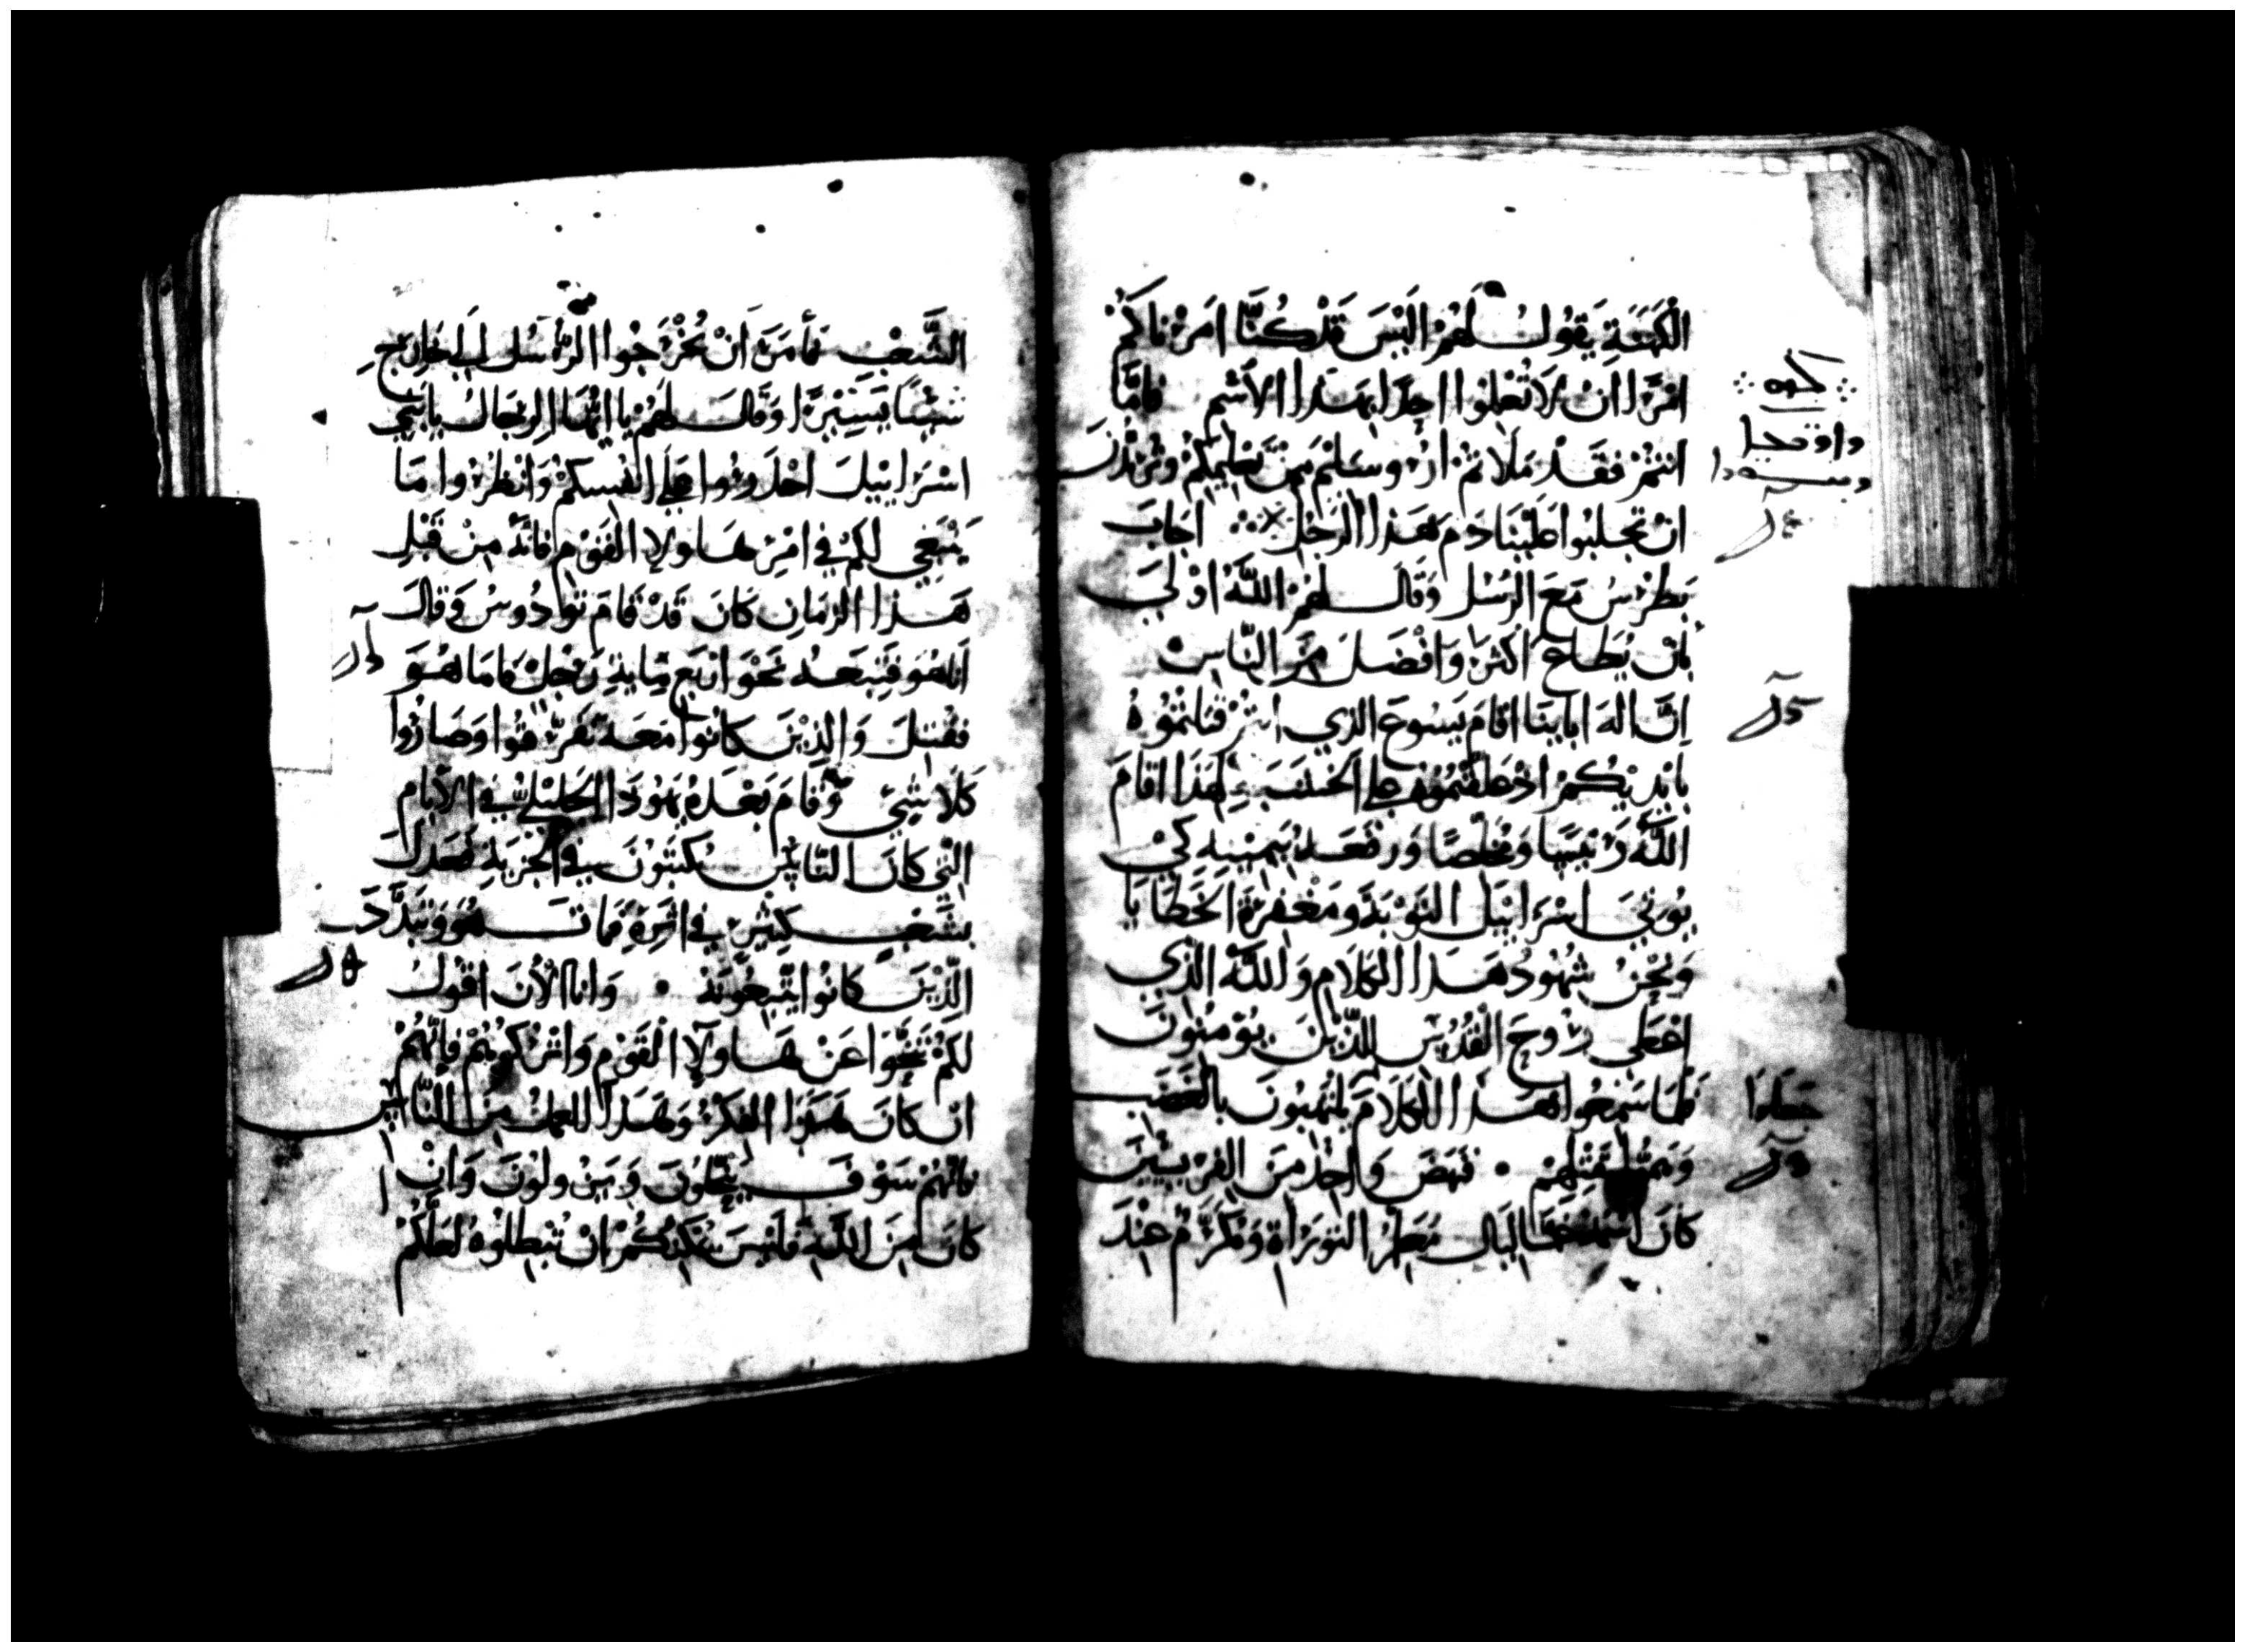 الْكَهَنَةِ يَقُولُ لَهُمْ الَيْسَ قَدْ كُنَّا امَرْنَاكُمْ
امْرًا انْ لَا تُعَلِمُوا احِدًا بِهَذا الاسْمِ فَامَّا
انْتُمْ فَقَدْ مَلَاتمْ اُرُوسَلِيْم مِنْ تَعْلِيمِكُمْ وتُرِيْدُونَ
انْ تجلبُوا عَلَيْنَا دَمَ هَذا الرَجُل اجَابَ
بَطْرُسُ مَعَ الرُسُل وَقَالَ لَهُمْ اللَّهُ اوْلَي
بانْ يُطَاعَ اكْثرَ وَافْضَلَ مِنَ النَّاسِ
اِنَّ الهَ ابَايِنَا اقَامَ يَسُوعَ الذي انتُمْ قَتَلْتُمُوْهُ
بايْدِيْكُمْ اذْ عَلَّقْتُمُوْهُ عَلي الخَشَبَةِ لِهَذَا اقَامَ
اللَّهُ رَيْيسًا وَمُخَلِصًا وَرَفَعَهُ بِيَمِيْنِهِ كَيْ
يُوْتِيَ اسْرَايْيل التوْبَةَ وَمَغْفِرَةَ الخَطَايَا
وَنَحْنُ شُهُودُ هَذَا الكَلَامِ وَاللَّهُ الذِي
اعْطَى رُوْحَ الْقُدُسِ لِلَّذِيْنَ يُوْمِنُونَ
فَلَمَا سَمِعُوا هَذَا الكَلَامَ يلتَهِبُونَ بالغَضَبِ
جَعلوا
وَهَمُّوا بِقَتْلِهِمْ • فَنَهَضَ وَاحِدٌ مِنَ الفرِيسِيْيْنَ
كَانَ اسْمُهُ غَمَالْيَالَ مُعَلِّمُ التوْرَاةِ وَمُكَرَّمٌ عِنْدَ
الشَّعْبِ فَأمَرَ انْ يُخْرَجُوا الرُسُل إِلي خَارِجٍ
شَيْئًا يَسِيْرًا وَقَالَ لَهُمْ يا ايُّهَا الرِجَالُ يا بَنِي
اسْرَايْيلَ احْذرُوا عَلي انْفُسِكمْ وَانْظُرُوا مَا
يَنْبَغِي لَكمْ في امْرِ هَاولاِ القَوْمِ فَانَّهُ مِنْ قَبْلِ
هَذا الزمَانِ كَانَ قَدْ قَامَ تَوادُوسُ وَقَالَ
انَا هُوَ فَتَبَعَهُ نَحْوَ ارْبَعِ مِايةِ رَجُلٍ فَامَا هُوَ
فَقُتِلَ وَالذِيْنَ كَانُوا مَعَهُ تفَرَّقُوا وَصَارُوا
كَلَا شَيْءٍ وَقَامَ بَعْدَهُ يَهُوذَا الجَلِيْلِيُّ في الايَامِ
التي كَانَ النَّاس يُكتَبُوْنَ في الجزيَةِ فَعَدَلَ
بِشَعْبٍ كَثِيْرٍ في اثرِهِ فَمَاتَ هُوَ وَتَبَدَّدَ
الَّذِيْنَ كَانُوا يَتَّبِعُونَهُ • وَانا الْانَ اقُولُ
لَكمْ تَنَحَّوَا عَنْ هَاولاِ القَوْمِ وَاتْرُكُوْهُمْ فَإنَّهُمْ
ان كَانَ هَذَا الفِكرُ وَهَذا العملُ مِنَ النَّاسِ
فانهُمْ سَوْفَ يَنْحَلُونَ وَيَزُولُونَ وَانْ
كَانَ مِنَ اللَّهِ فَليْسَ يُمْكِنُكُمْ انْ تُبْطِلُوْهُ لعَلكُمْ